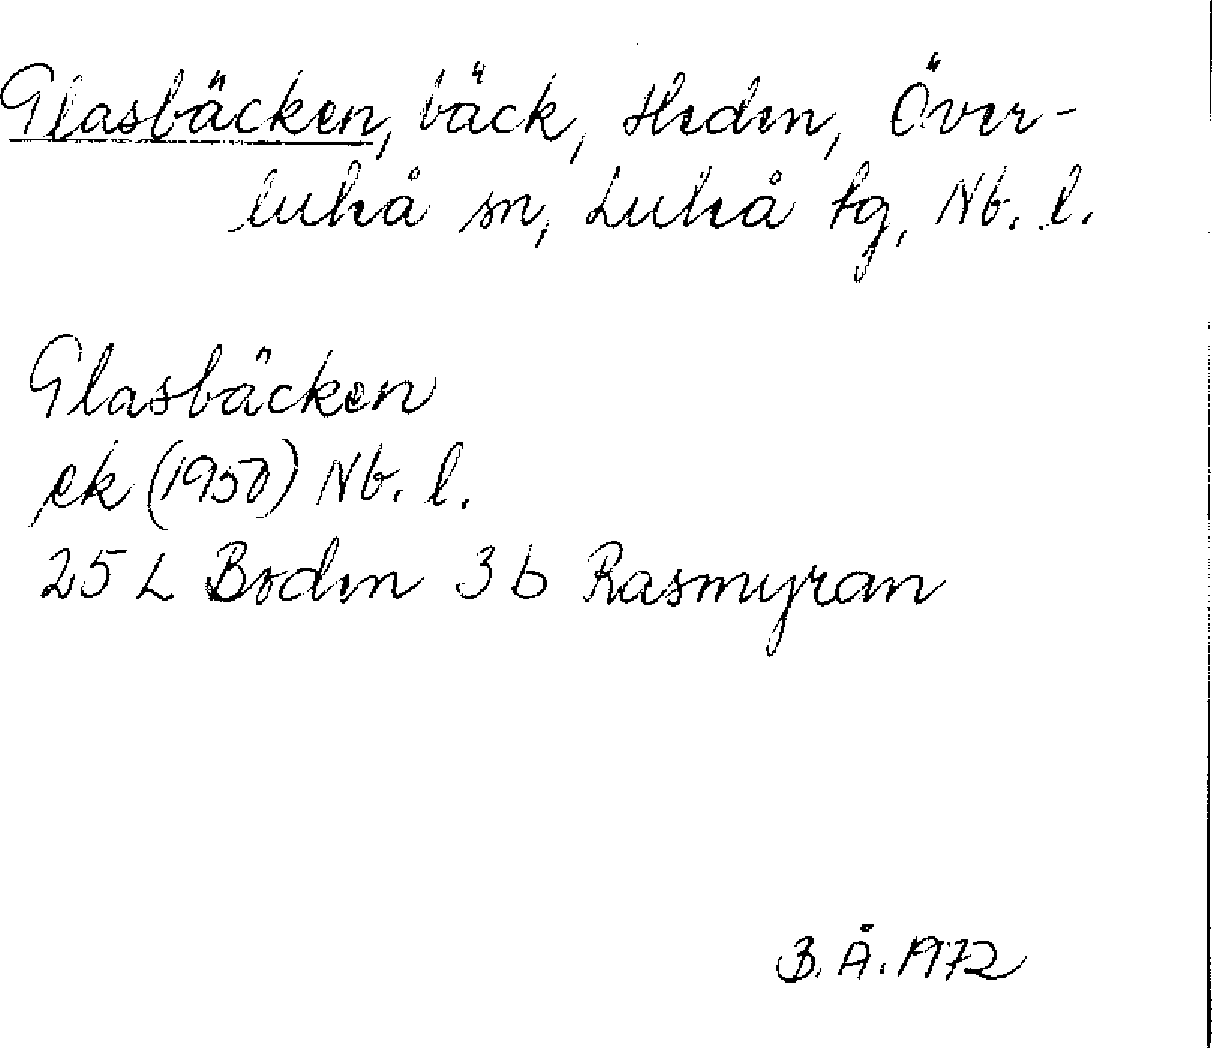 Glasbäcken, bäck, Heden, Över-
luleå sn, Luleå tg, Nb. l.
Glasbäcken
ek (1950) Nb. l.
25 L Boden 3 b Rasmyran
B. Å. 1972